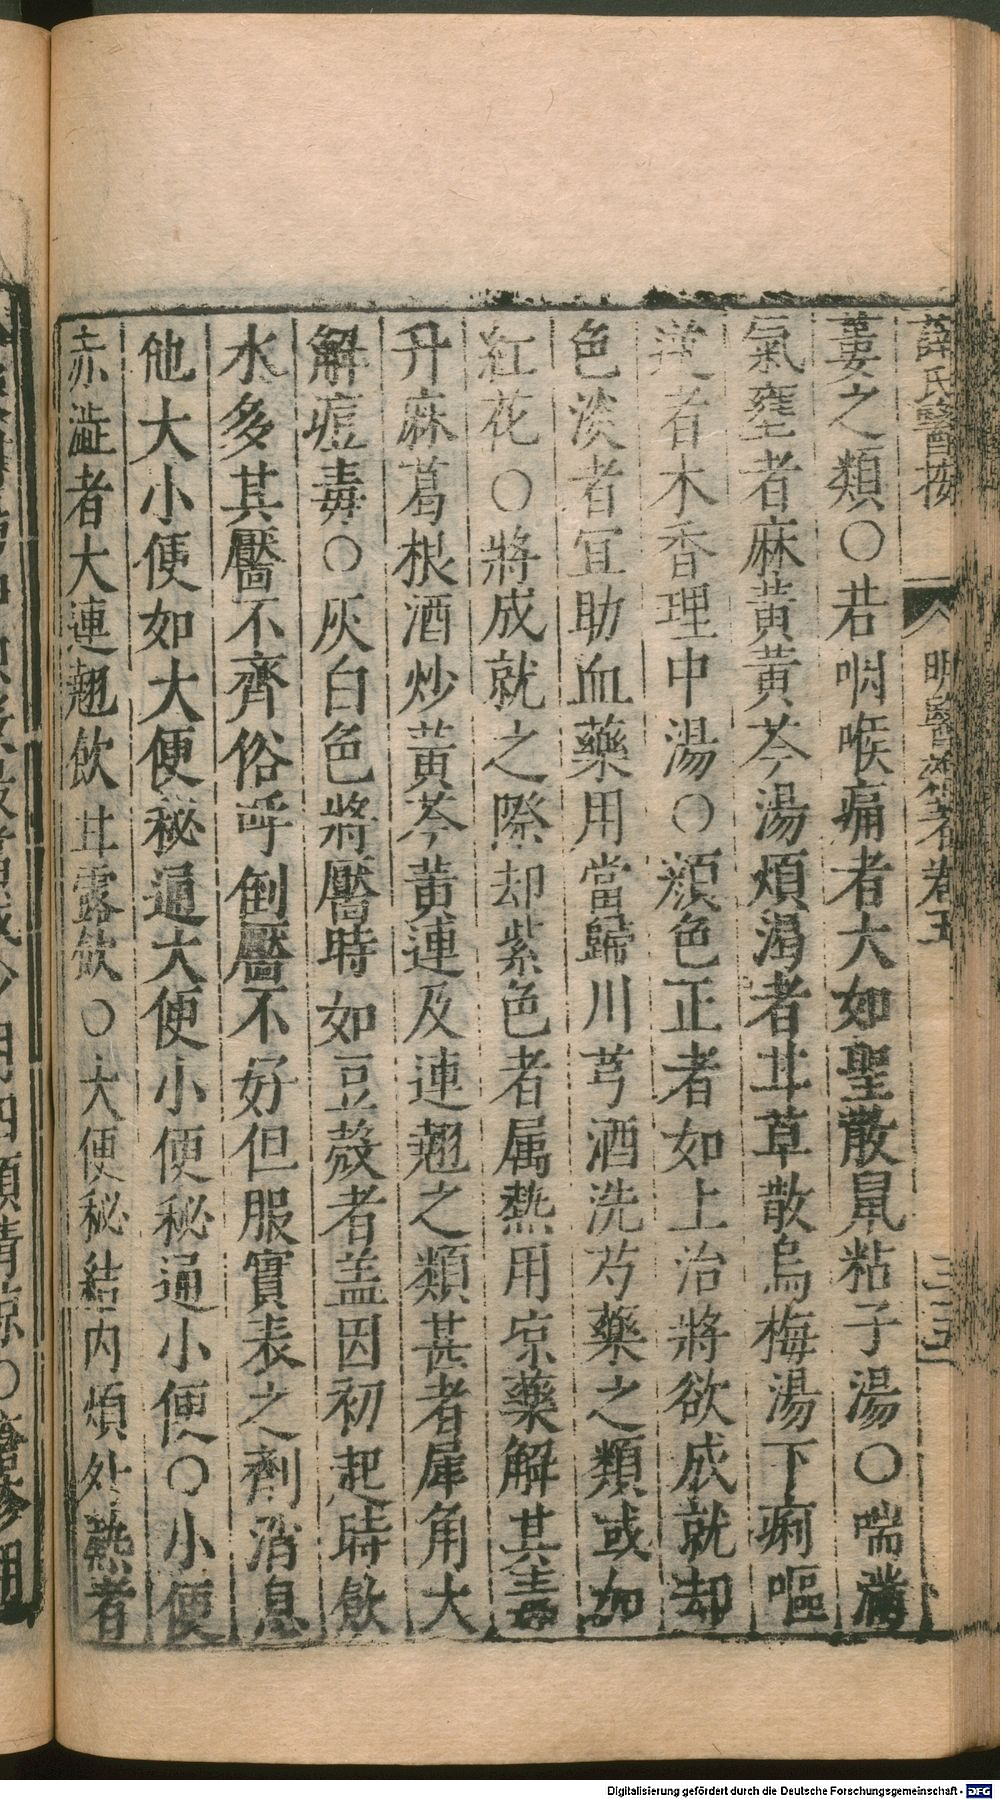 薛氏醫按 明醫雜著卷五 三五
蔞之類〇若咽喉痛者大如聖散鼠粘子湯〇喘滿
氣壅者麻黃黃芩湯煩渴者甘草散烏梅湯下痢嘔
逆者木香理中湯〇顏色正者如上治將欲成就却
色淡者宜助血藥用當歸川芎酒洗芍藥之類或加
紅花〇將成就之際却紫色者属熱用凉藥解其毒
升麻葛根酒炒黃芩黃連及連翹之類甚者犀角大
解痘毒〇灰白色將靨時如豆殼者盖因初起時飲
水多其靨不齊俗呼倒靨不好但服實表之劑消息
他大小便如大便秘通大便小便秘通小便〇小便
赤澁者大連翹飲甘露飲〇大便秘結内煩外熱者
Digitalisierung gefördert durch die Deutsche Forschungsgemeinschaft - DFG